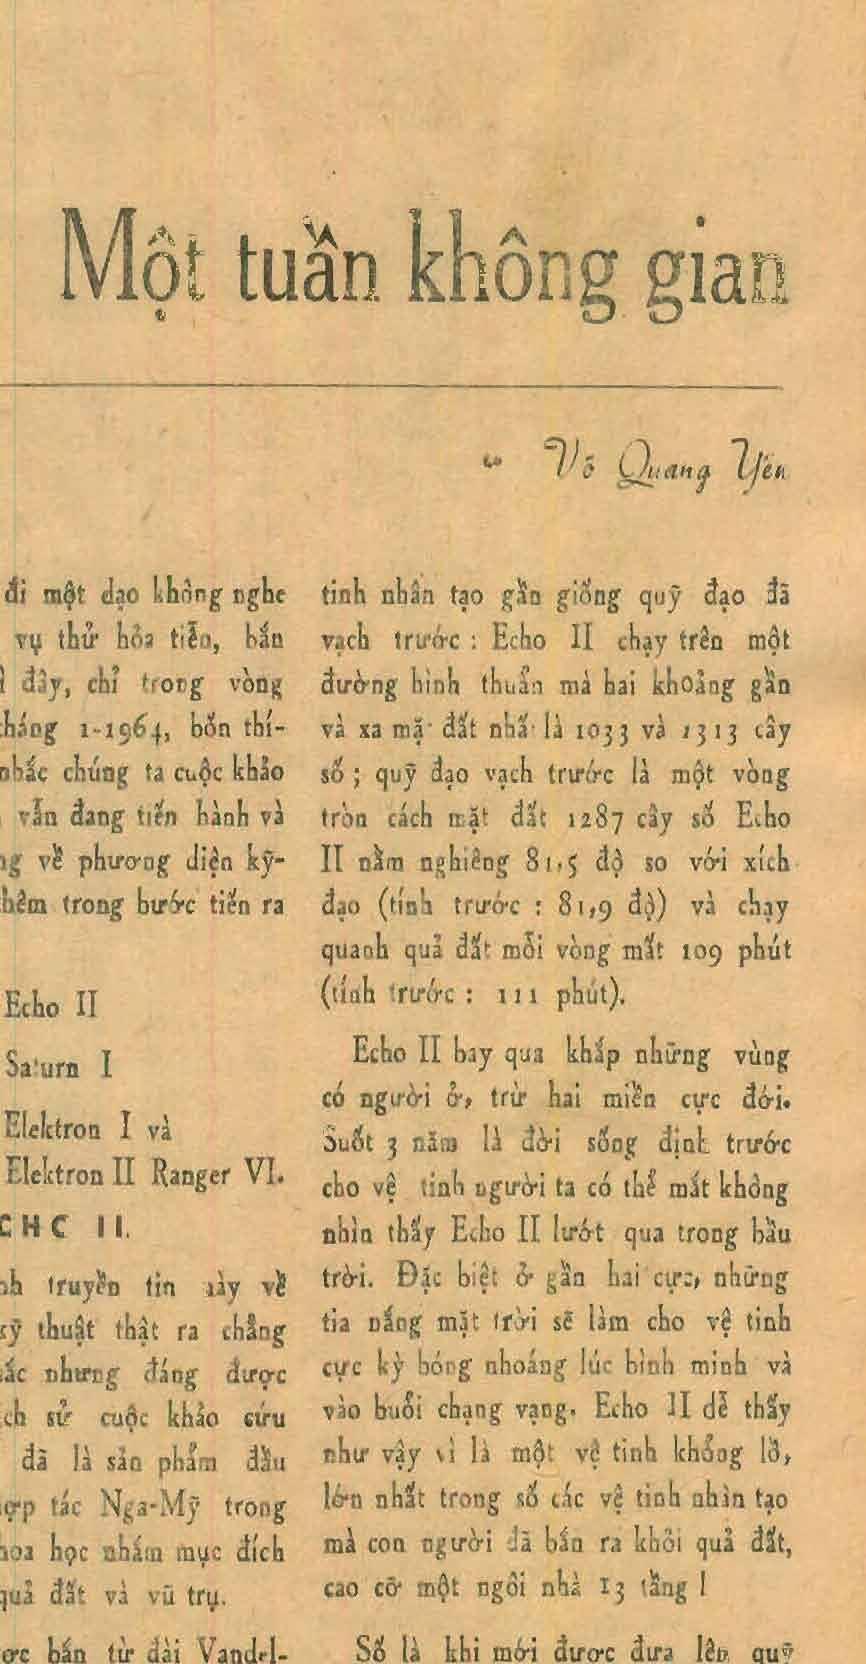 Một tuần không gian
Võ Quang Yến
đi một dạo không nghe
vụ thử hỏa tiễn, bắn
đây, chỉ trong vòng
tháng 1-1964, bốn thí-
nhắc chúng ta cuộc khảo
vẫn đang tiến hành và
về phương diện kỹ-
thêm trong bước tiến ra
Echo II
Saturn I
Elektron I và
Elektron II Ranger VI.
II.
truyền tin này về
kỹ thuật thật ra chẳng
nhưng đáng được
sử cuộc khảo cứu
đã là sản phẩm đầu
hợp tác Nga-Mỹ trong
khoa học nhắm mục đích
quả đất và vũ trụ.
bắn từ đài Vandel-
tinh nhân tạo gần giống quỹ đạo đã
vạch trước : Echo II chạy trên một
đường hình thuẩn mà hai khoảng gần
và xa mặt đất nhất là 1033 và 1313 cây
số ; quỹ đạo vạch trước là một vòng
tròn cách mặt đất 1287 cây số Echo
II nằm nghiêng 81,5 độ so với xích
đạo (tính trước : 81,9 độ) và chạy
quanh quả đất mỗi vòng mất 109 phút
(tính trước : 111 phút).
Echo II bay qua khắp những vùng
có người ở, trừ hai miền cực đới.
Suốt 3 năm là đời sống định trước
cho vệ tinh người ta có thể mắt không
nhìn thấy Echo II lướt qua trong bầu
trời. Đặc biệt ở gần hai cực, những
tia nắng mặt trời sẽ làm cho vệ tinh
cực kỳ bóng nhoáng lúc bình minh và
vào buổi chạng vạng. Echo II dễ thấy
như vậy vì là một vệ tinh khổng lồ,
lớn nhất trong số các vệ tinh nhân tạo
mà con người đã bắn ra khỏi quả đất,
cao cỡ một ngôi nhà 13 tầng !
Số là khi mới được đưa lên quỹ